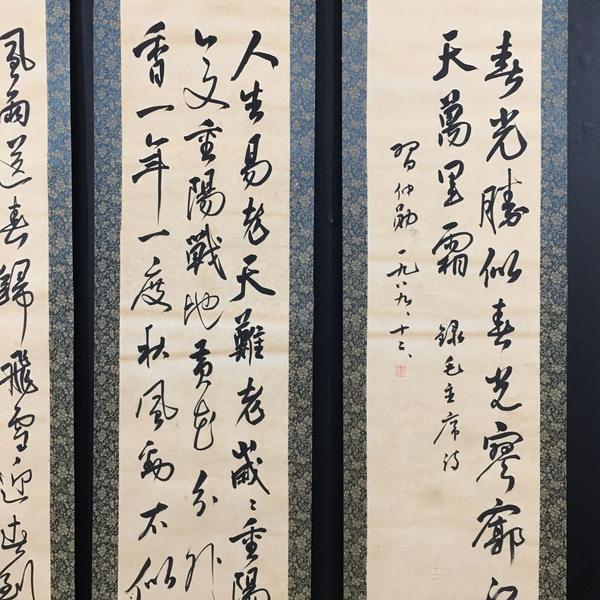 風雨送春歸飛雪迎春到
人生易老天難老歲々重陽
今又重陽戰地黃花分外
香一年一度秋風勁不似
春光勝似春光寥廓江
天萬里霜 錄毛主席詩
習仲勛 一九八九、十二、